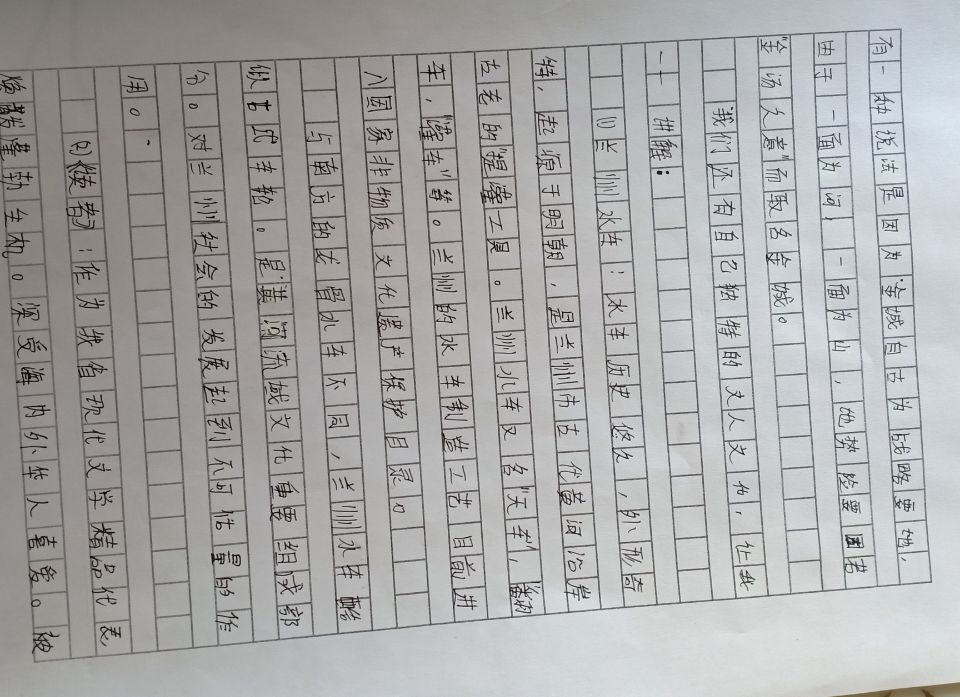 有一种说法是因为金城自古为战略要地,
由于一面为河,一面为山,地势险要固若
"金汤之意"而取名金城。
我们还有自己独特的文人文化,让我
一一讲解:
(1)兰州水车:水车历史悠久,外形奇
特,起源于明朝,是兰州市古代黄河沿岸
古老的"提灌工具。兰州水车又名"天车",
车,灌车"等。兰州的水车制造工艺目前进
入国家非物质文化遗产保护目录。
与南方的龙骨水车不同,兰州水车酷
似古式车轮。是黄河流域文化重要组成部
分。对兰州社会的发展起到不可估量的作
用。
:作为我省现代文学精品代表,
焕散蓬勃生机。深受海内外华人喜爱。被